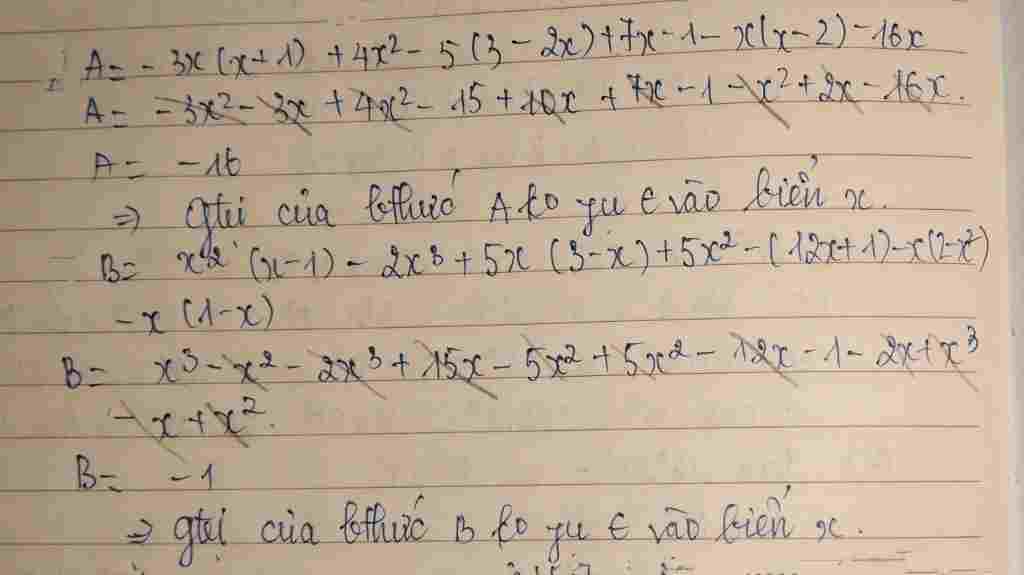 A = - 3x (x+1) + 4x² - 5 (3 - 2x) + 7x - 1 - x(x-2) - 16x
A = -3x² - 3x + 4x² - 15 + 10x + 7x - 1 - x² + 2x - 16x.
A = -16
⇒ gtrị của bthức A ko
B = x² (x-1) - 2x³ + 5x (3-x) + 5x² - (12x+1) - x(2-x²)
- x (1-x)
B = x³ - x² - 2x³ + 15x - 5x² + 5x² - 12x - 1 - 2x + x³
- x + x².
B = -1
⇒ gtrị của bthức B ko